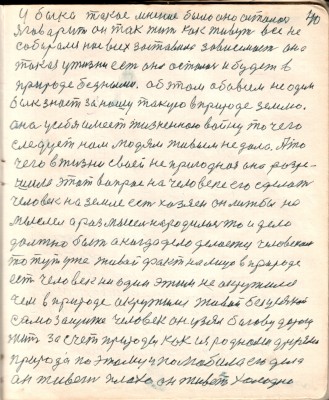 40
и было такое мнение было оно осталось
говорит он так жить как живут все не
собирались нас всех заставила зависимость она
такая у жизни есть она осталась и будет в
природе бедными. об этом обо всем не один
знает за нашу такую в природе землю.
она у себя имеет жизненною войну то чего
следует нам людям живым не дала. А то
чего в жизни своей не природная она разре
шила этот вопрос на человеке его сделать
человек на земле есть хозяин он
мыслел а раз мысел народилась то и дело
должно быть а когда дело делается человеком
то тут уже живой факт на лицо в природе
есть человек ни один этим не окружился
чем в природе окружился живой безвредный
самозащите человек он узял богову дорогу
жить за счет природы как их родного друга
природа по этому и полюбила его дела
он живет плохо, он живет холодно